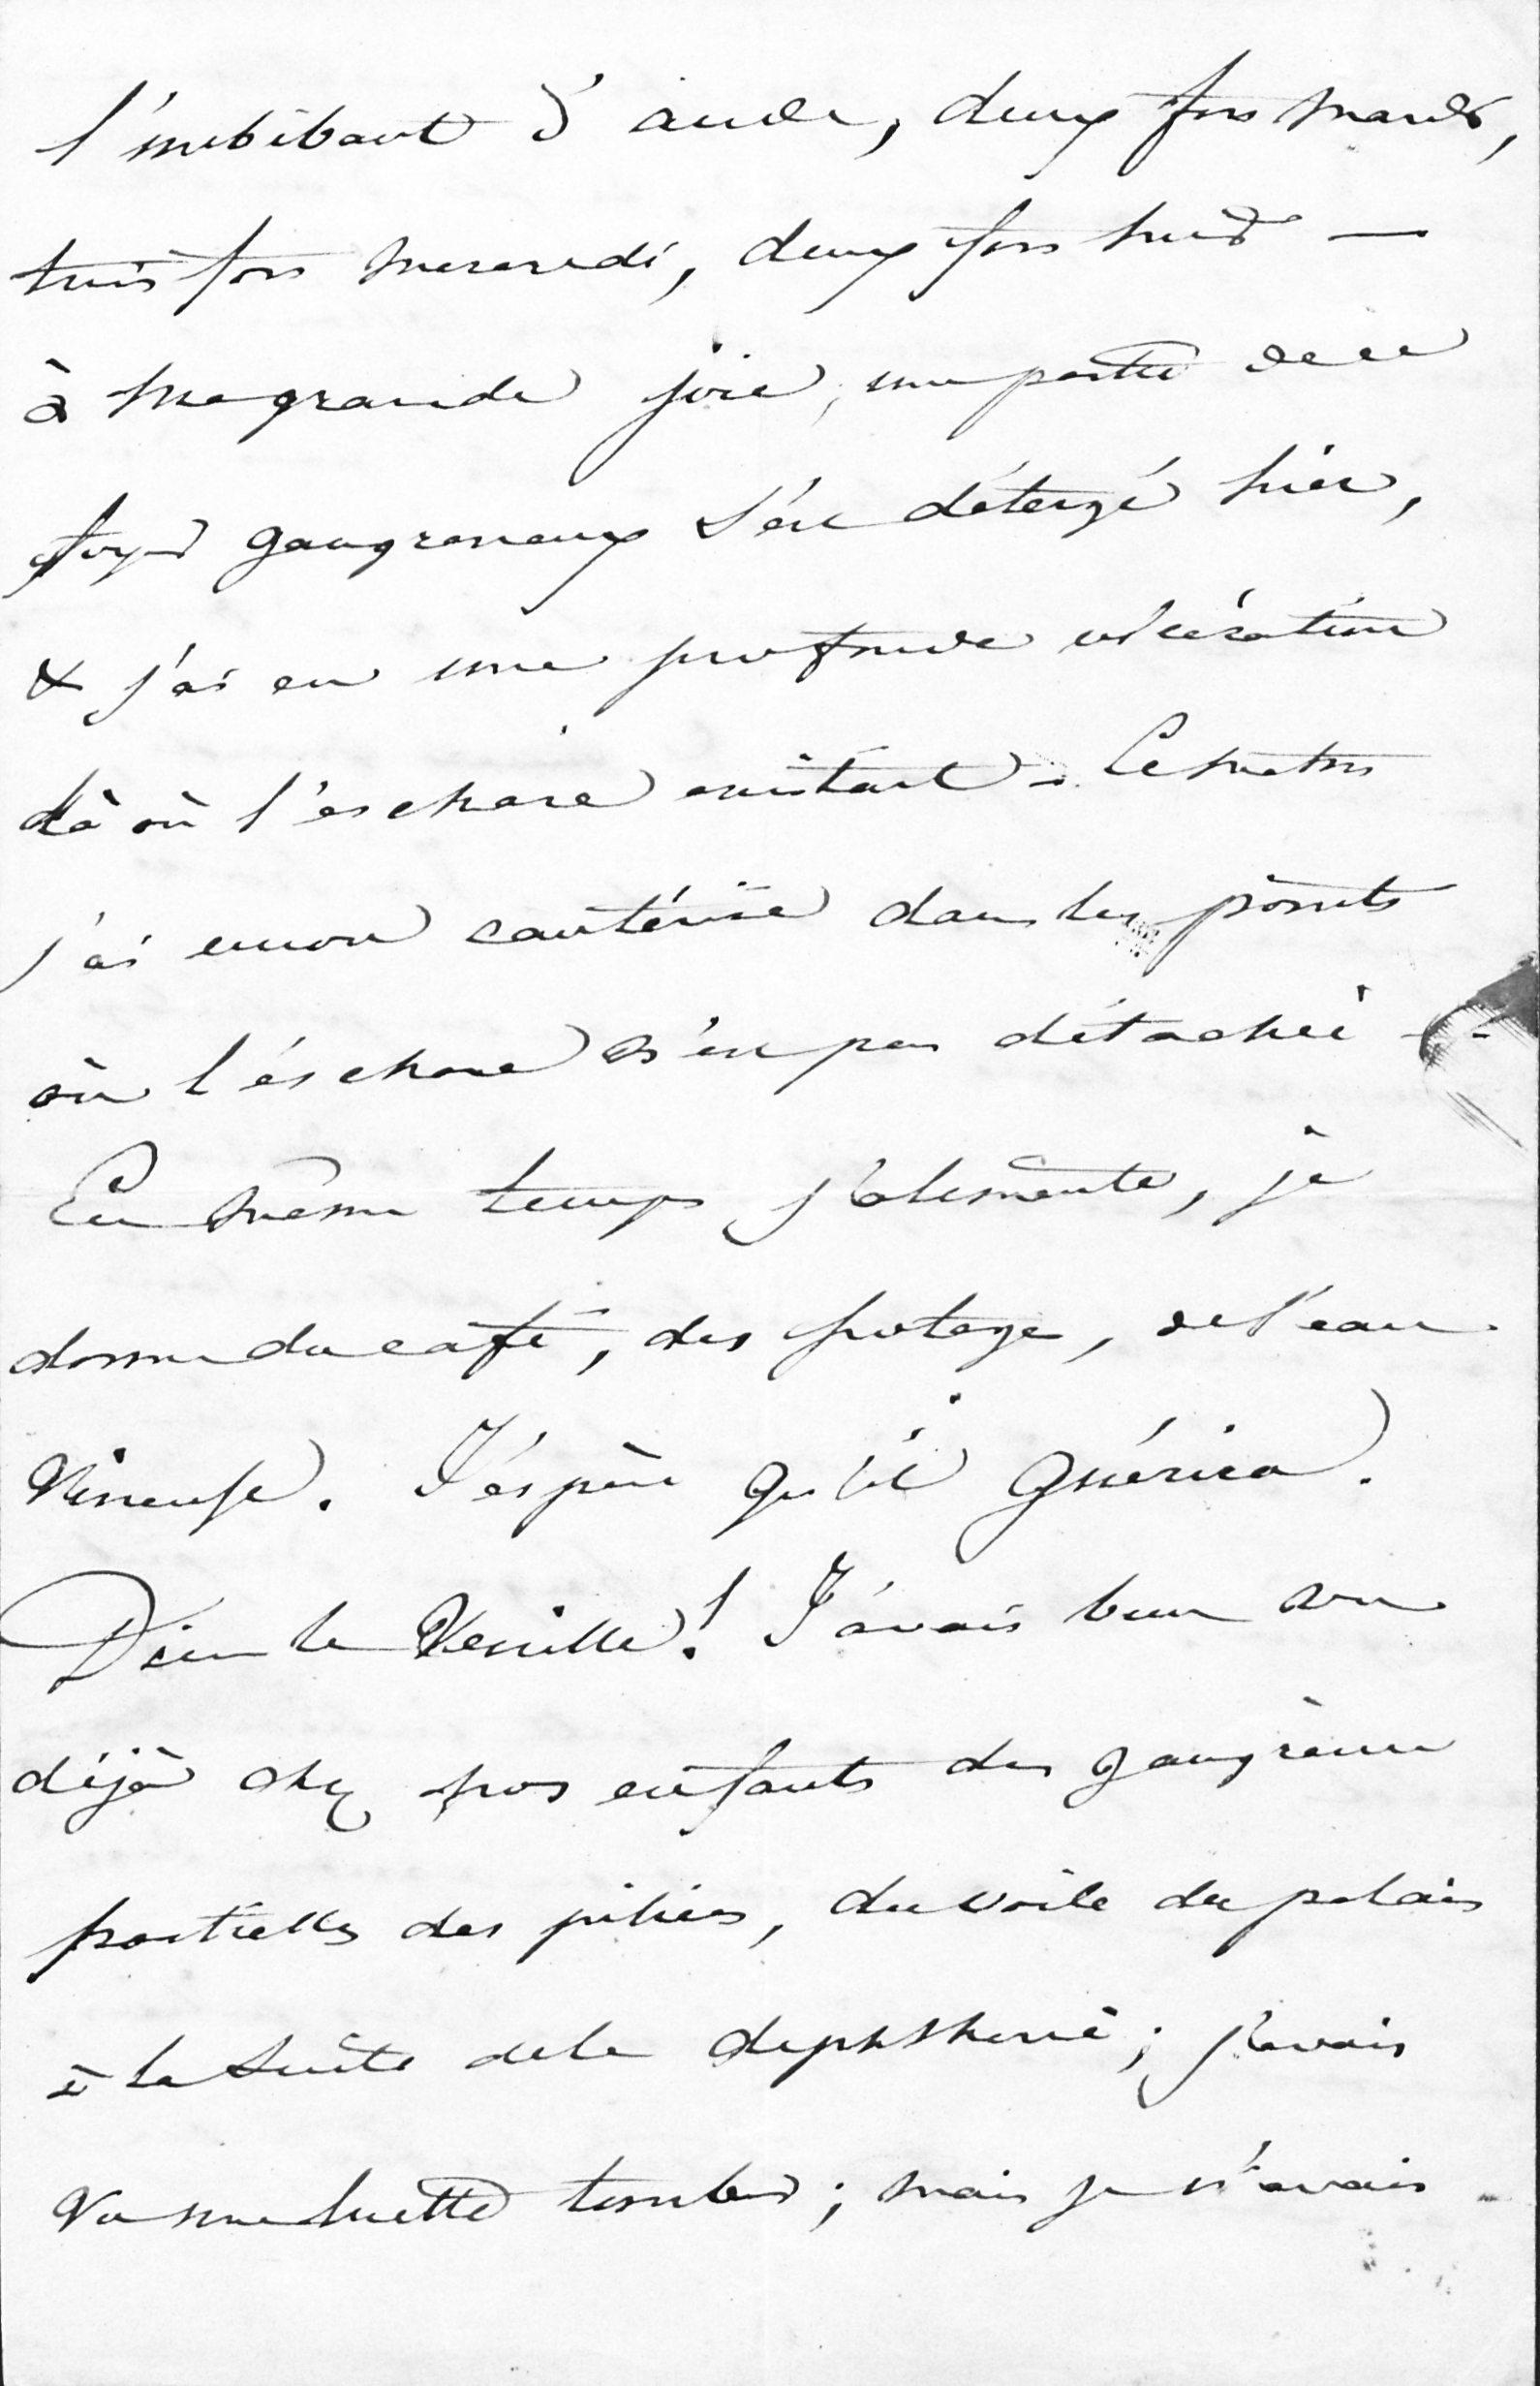 l'imbibant d'acide, deux fois mardi,
trois fois mercredi, deux fois jeudi —
à ma grande joie, une partie de ce
foyer gangreneux s'est détergé hier,
& j'ai eu une profonde ulcération
là où l'eschare existait. Ce matin
j'ai encore cautérisé dans les points
où l'eschare n'est pas détachée —
En même temps j'alimente, je
donne du café, des potage, de l'eau
vineuse. J'espère qu'il guérira.
Dieu le veuille! J'avais bien vu
déjà chez nos enfants des gangrènes
partielles des piliers, du voile du palais
à la suite de la diphthérie; j'avais
vu une luette tomber; mais je n'avais